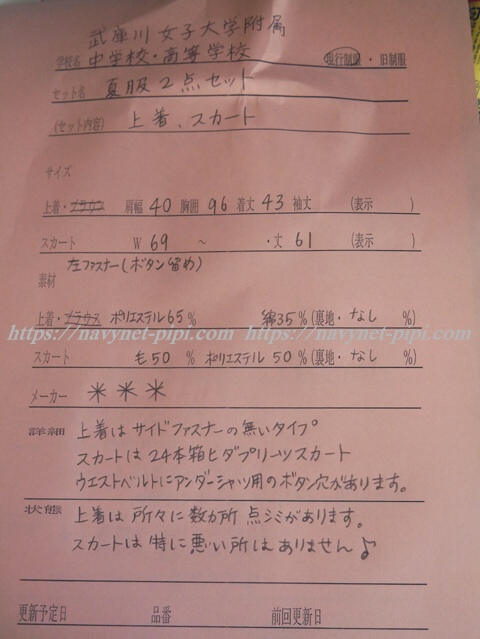 武庫川女子大学附属
学校名 中学校・高等学校 現行制服・旧制服
セット名 夏服2点セット
(セット内容) 上着、スカート
サイズ
上着・ブラウス 肩幅 40 胸囲 96 着丈 43 袖丈 (表示 )
スカート W 69 ~ ・丈 61 (表示 )
左ファスナー(ボタン留め)
素材
上着・ブラウス ポリエステル65% 綿35%(裏地・なし %)
https://navynet-pipi.com/ https://navynet-pipi.com/
スカート 毛50 % ポリエステル 50 %(裏地・なし %)
メーカー ＊＊＊
詳細 上着はサイドファスナーの無いタイプ
スカートは24本箱ヒダプリーツスカート
ウエストベルトにアンダーシャツ用のボタン穴があります。
状態 上着は所々に数カ所点シミがあります。
スカートは特に悪い所はありません♪
更新予定日 品番 前回更新日